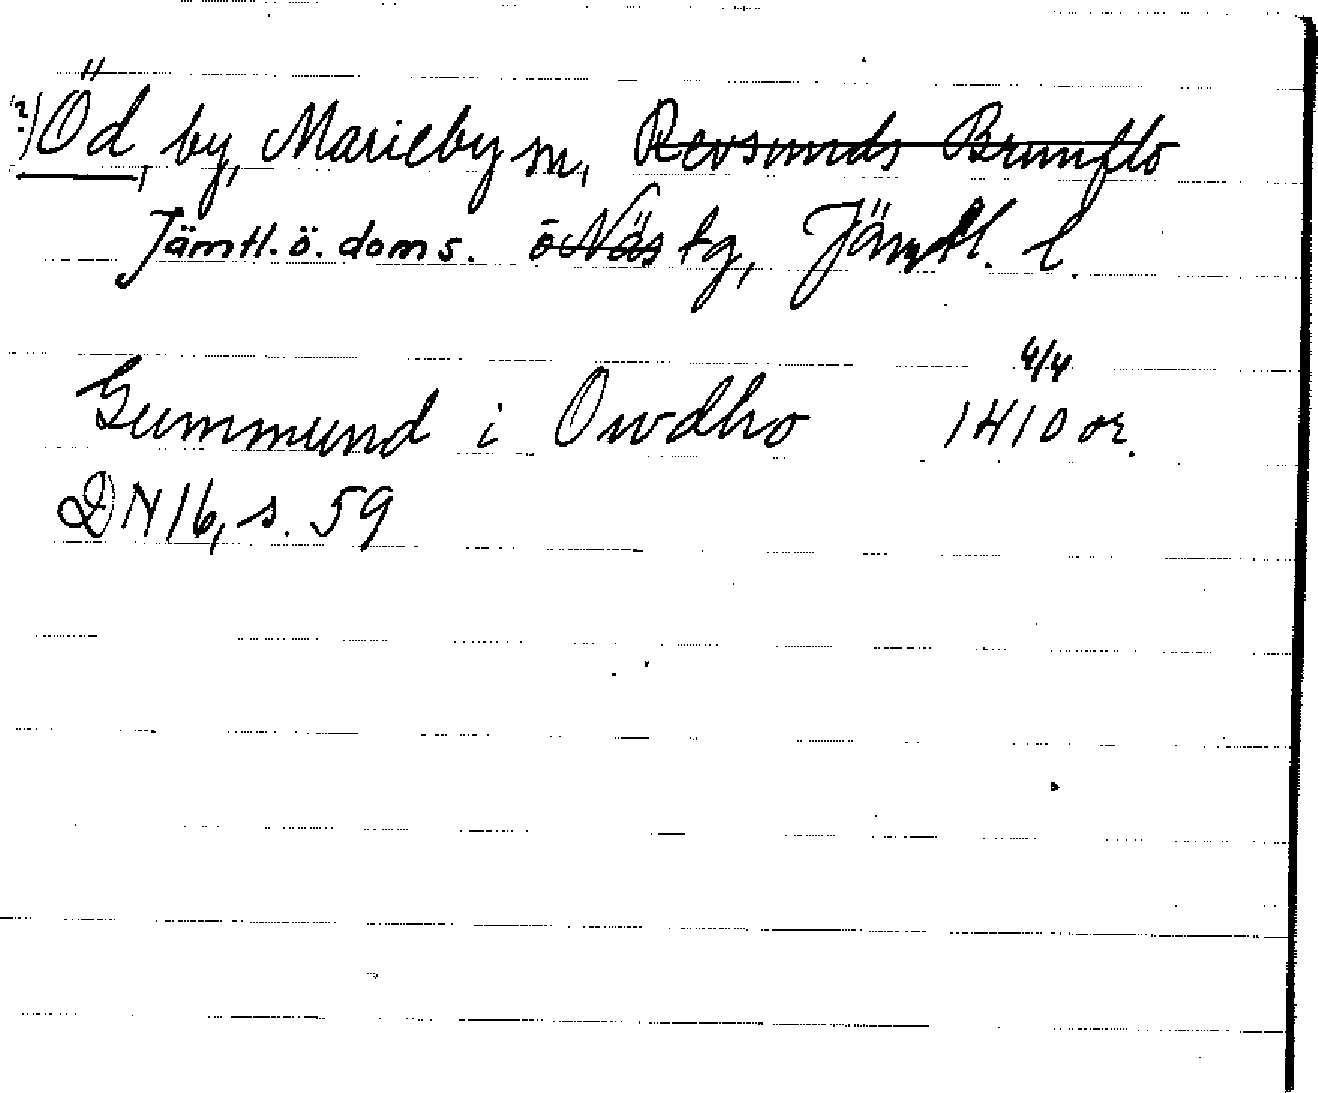 ?) Öd, by, Marieby sn, Revsunds Brunflo
Jämtl. ö. doms. o Näs tg, Jämtl. l.
Gummund i Owdho 4/4 1410 or.
DN 16, s. 59